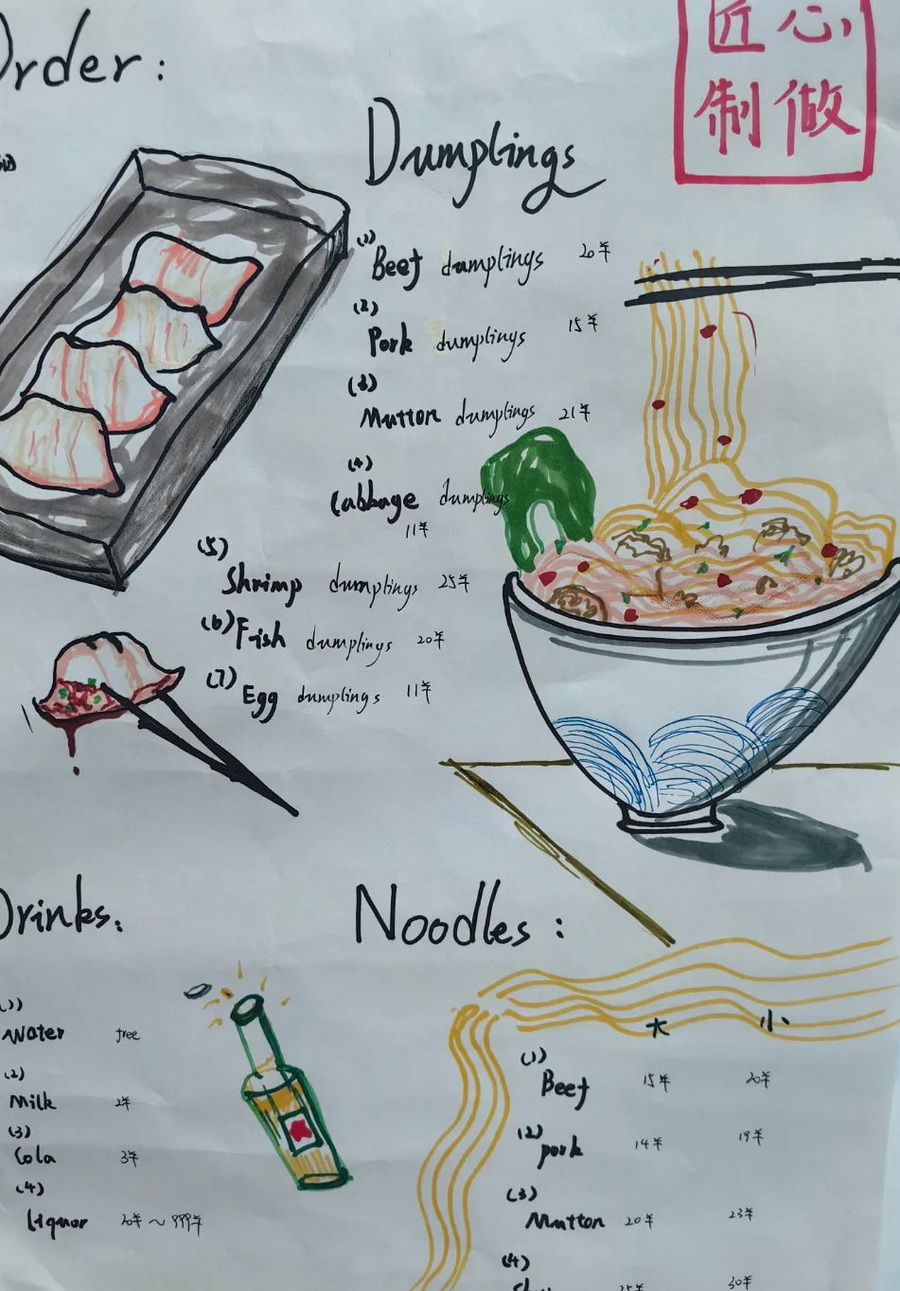 Order:
匠心
制做
Dumplings
(1)
Beef dumplings 20羊
(2)
Pork dumplings 15羊
(3)
Mutton dumplings 21羊
(4)
Cabbage dumplings
11羊
(5)
Shrimp dumplings 25羊
(6) Fish dumplings 20羊
(7) Egg dumplings 11羊
Drinks:
(1)
Water free
(2)
Milk 2羊
(3)
Cola 3羊
(4)
Liquor 20羊~999羊
Noodles:
大 小
(1)
Beef 15羊 20羊
(2) pork 14羊 19羊
(3)
Mutton 20羊 23羊
(4)
25羊 30羊